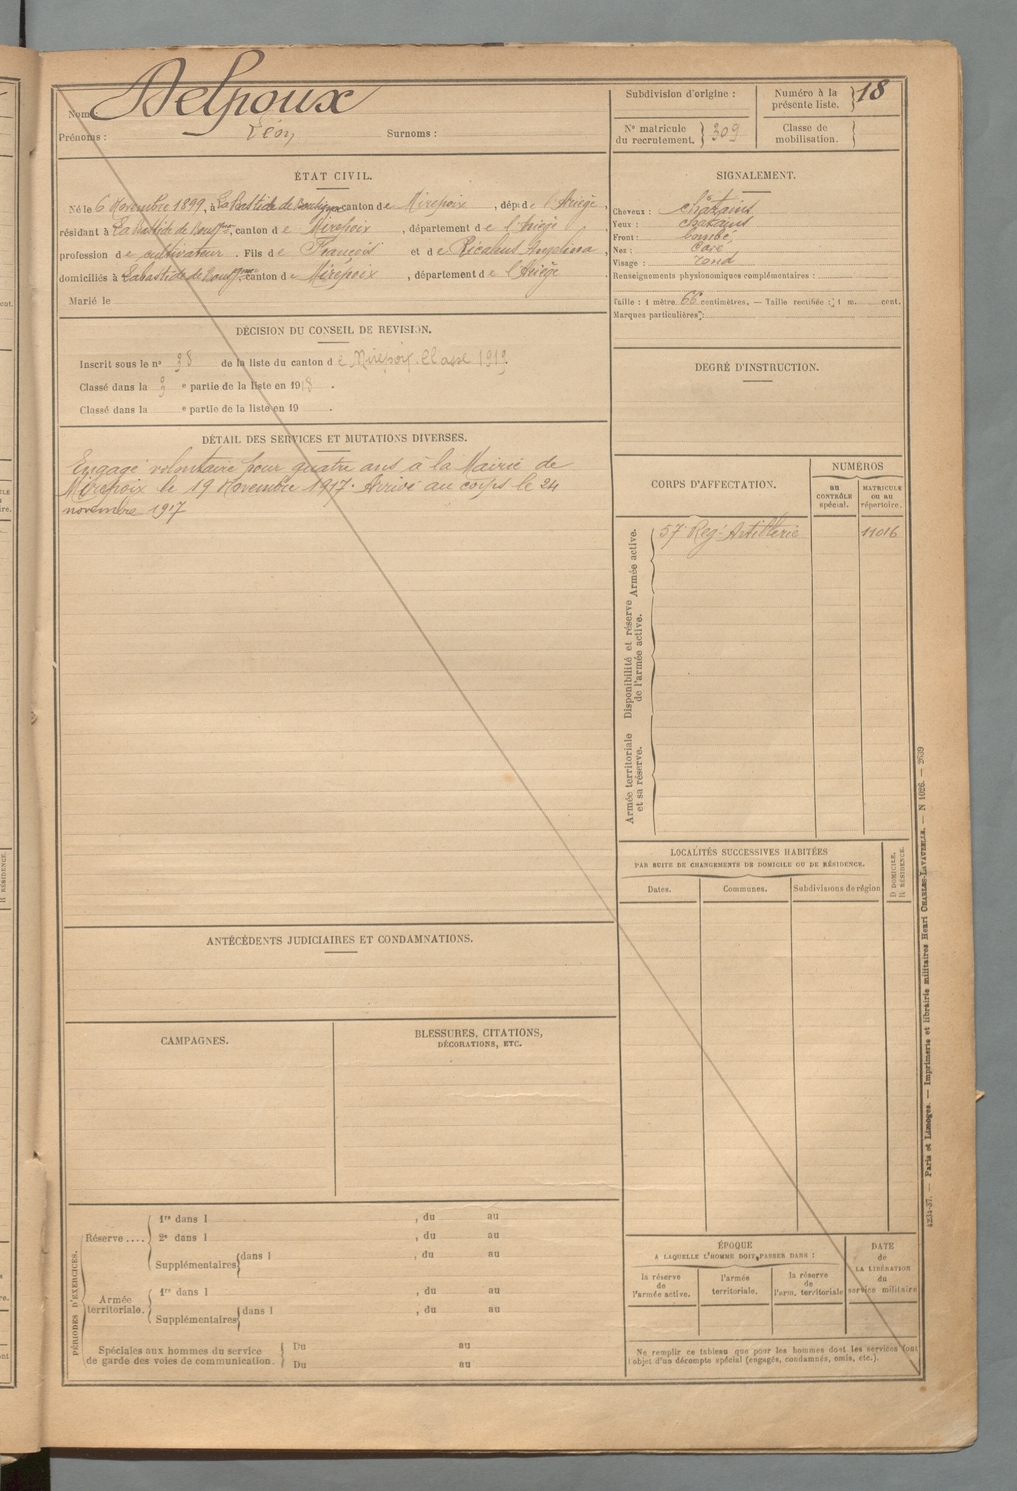 Nom : Delpoux
Prénoms : Léon Surnoms :
Subdivision d'origine :
Numéro à la présente liste. } 18
N° matricule du recrutement. } 309
Classe de mobilisation. }
ÉTAT CIVIL.
Né le 6 Novembre 1899, à La Bastide de Bousignac canton de Mirepoix, dép. de l'Ariège,
résidant à La Bastide de Bousgnac, canton de Mirepoix, département de l'Ariège
profession de cultivateur. Fils de François et de Angelina,
domiciliés à Labastide de Bousgnac, canton de Mirepoix, département de l'Ariège
Marié le
SIGNALEMENT.
Cheveux : châtains
Yeux : chatains
Front : bombé
Nez : cave
Visage : rond
Renseignements physionomiques complémentaires :
Taille : 1 mètre 66 centimètres. — Taille rectifiée : 1 m. cent.
Marques particulières :
DÉCISION DU CONSEIL DE REVISION.
Inscrit sous le n° 38 de la liste du canton de Mirepoix. Classe 1919
Classé dans la e partie de la liste en 1918.
Classé dans la e partie de la liste en 19 .
DEGRÉ D'INSTRUCTION.
DÉTAIL DES SERVICES ET MUTATIONS DIVERSES.
Engagé volontaire pour quatre ans à la Mairie de
Mirepoix le 19 Novembre 1917. Arrivé au corps le 24
novembre 1917
CORPS D'AFFECTATION.
NUMÉROS
AU CONTRÔLE spécial.
MATRICULE ou au répertoire.
Armée active.
57 Reg.t Artillerie 11016
Disponibilité et réserve de l'armée active.
Armée territoriale et sa réserve.
LOCALITÉS SUCCESSIVES HABITÉES
PAR SUITE DE CHANGEMENTS DE DOMICILE OU DE RÉSIDENCE.
Dates. Communes. Subdivisions de région
D DOMICILE.
R RÉSIDENCE.
ANTÉCÉDENTS JUDICIAIRES ET CONDAMNATIONS.
CAMPAGNES.
BLESSURES, CITATIONS,
DÉCORATIONS, ETC.
PÉRIODES D'EXERCICES.
Réserve ....
1re dans l , du au
2e dans l , du au
Supplémentaires { dans l , du au
Armée territoriale.
1re dans l , du au
Supplémentaires { dans l , du au
Spéciales aux hommes du service
de garde des voies de communication.
Du au
Du au
ÉPOQUE
A LAQUELLE L'HOMME DOIT PASSER DANS :
la réserve de l'armée active.
l'armée territoriale.
la réserve de l'arm. territoriale
DATE
de
LA LIBÉRATION
du
service militaire
Ne remplir ce tableau que pour les hommes dont les services font
l'objet d'un décompte spécial (engagés, condamnés, omis, etc.).
Paris et Limoges. — Imprimerie et librairie militaires Henri CHARLES-LAVAUZELLE. — N 1026. — 2639